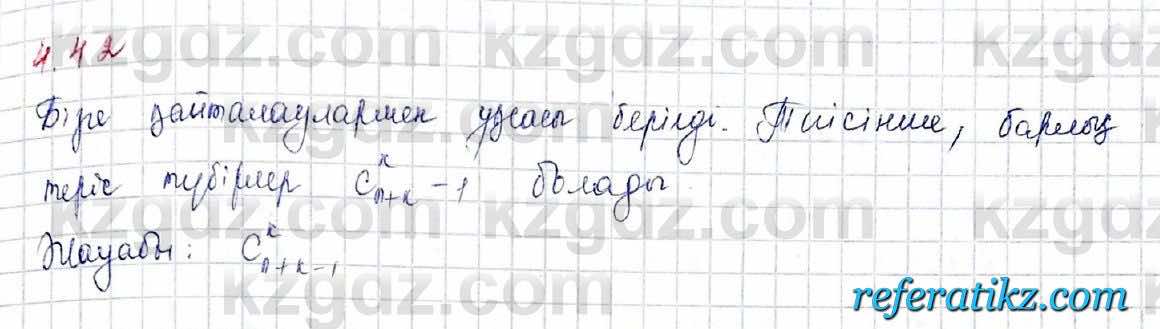 4.42
Бізге қайталаулармен ұяшы берілді. Тиісінше, барлық
теріс түбірлер C^k_{n+k} - 1 болады
Жауабы: C^k_{n+k-1}
kzgdz.com kzgdz.com kzgdz.com
kzgdz.com kzgdz.com kzgdz.com
referatikz.com